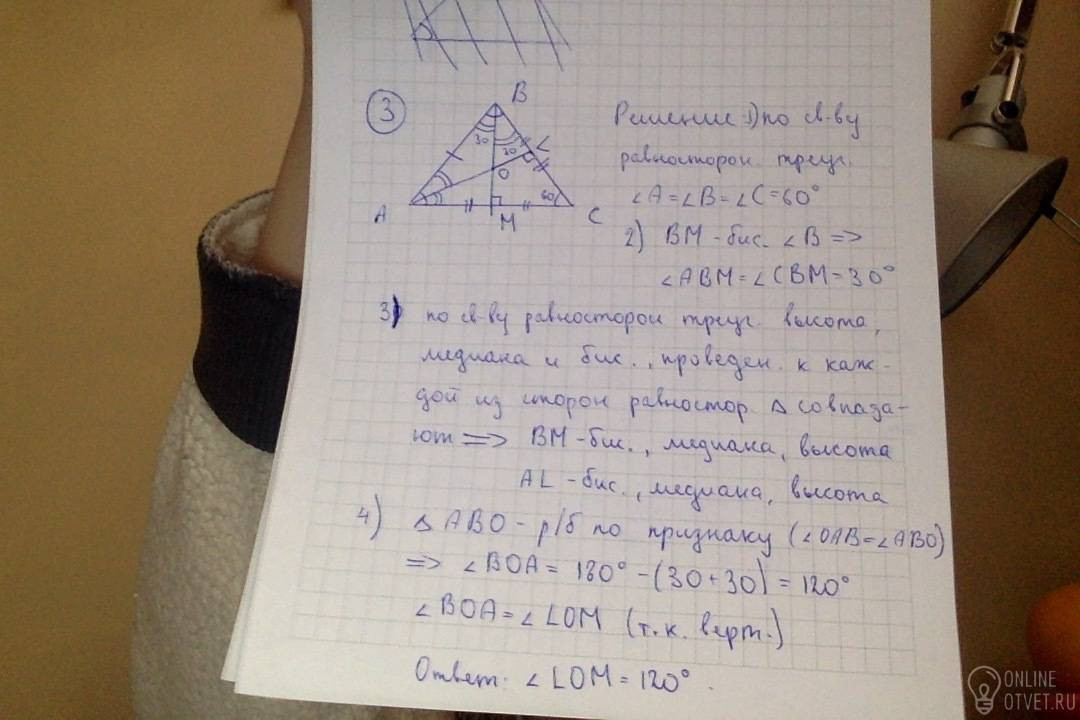 3
B
30 30 L
O
60
A M C
Решение: 1) по св-ву
равносторон. треуг.
∠A = ∠B = ∠C = 60°
2) BM - бис. ∠B =>
∠ABM = ∠CBM = 30°
3) по св-ву равносторон треуг. высота,
медиана и бис., проведен. к каж-
дой из сторон равностор. Δ совпада-
ют => BM - бис., медиана, высота
AL - бис., медиана, высота
4) Δ ABO - р/б по признаку (∠OAB = ∠ABO)
=> ∠BOA = 180° - (30 + 30) = 120°
∠BOA = ∠LOM (т.к. верт.)
Ответ: ∠LOM = 120°.
ONLINE
OTVET.RU